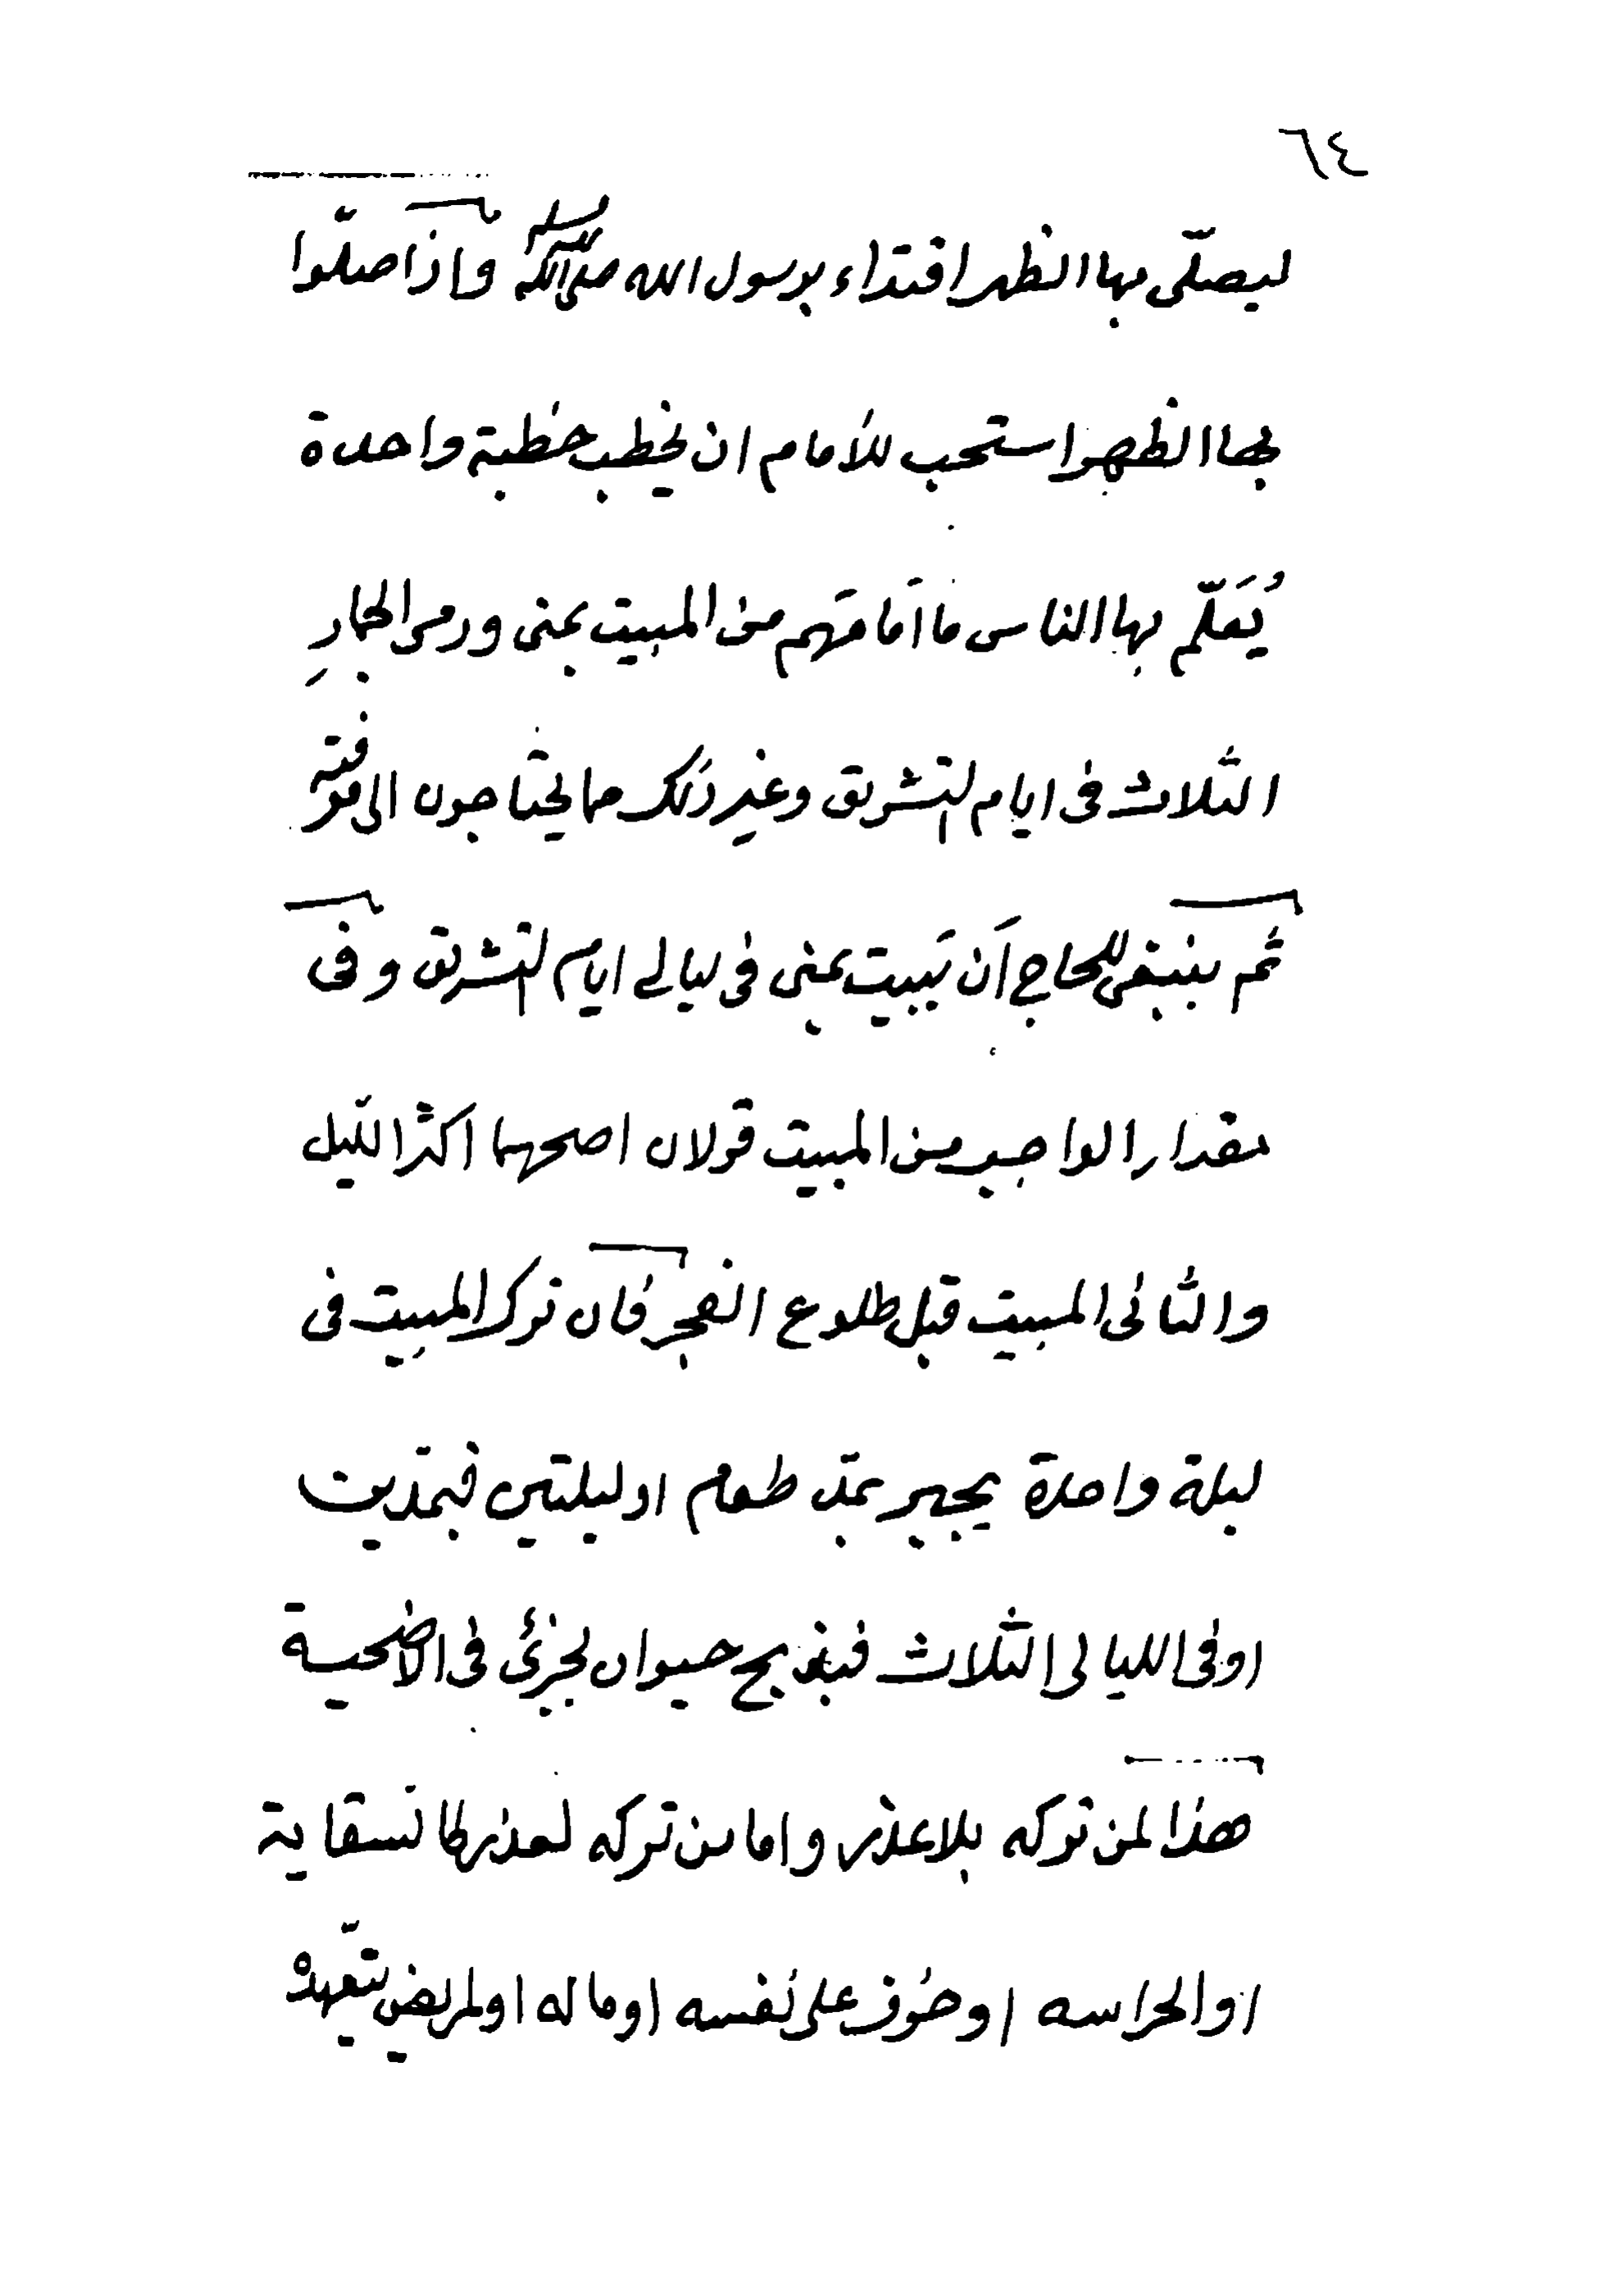 ٦٤
ليصلّى بها الظهر اقتداء برسول الله صلى الله عليه وسلم واذا صلّوا
بها الظهر استحب للأمام ان يخطب خطبة واحدة
يُعَلّم بها الناس ما اَمامَهم من المبيت بمنى ورمى الجمارِ
الثلاث فى ايام التشريق وغير ذلك مما يحتاجون الى معرفته
ثم ينبغى للحاج اَن يَبيت بمنى فى ليالى ايام التشريق وفى
مقدار الواجب من المبيت قولان اصحهما اكثر الليل
والثانى المبيت قبل طلوع الفجر فان ترك المبيت فى
ليلة واحدة يجبر بمدّ طعام او ليلتين فبمدّين
او فى الليالى الثلاث فبذبح حيوان يجزئ فى الاضحية
هذا لمن تركه بلا عذر واما من تركه لعذر كالسقاية
او الحراسه او خوف على نفسه او ماله او لمريض يتعّهده